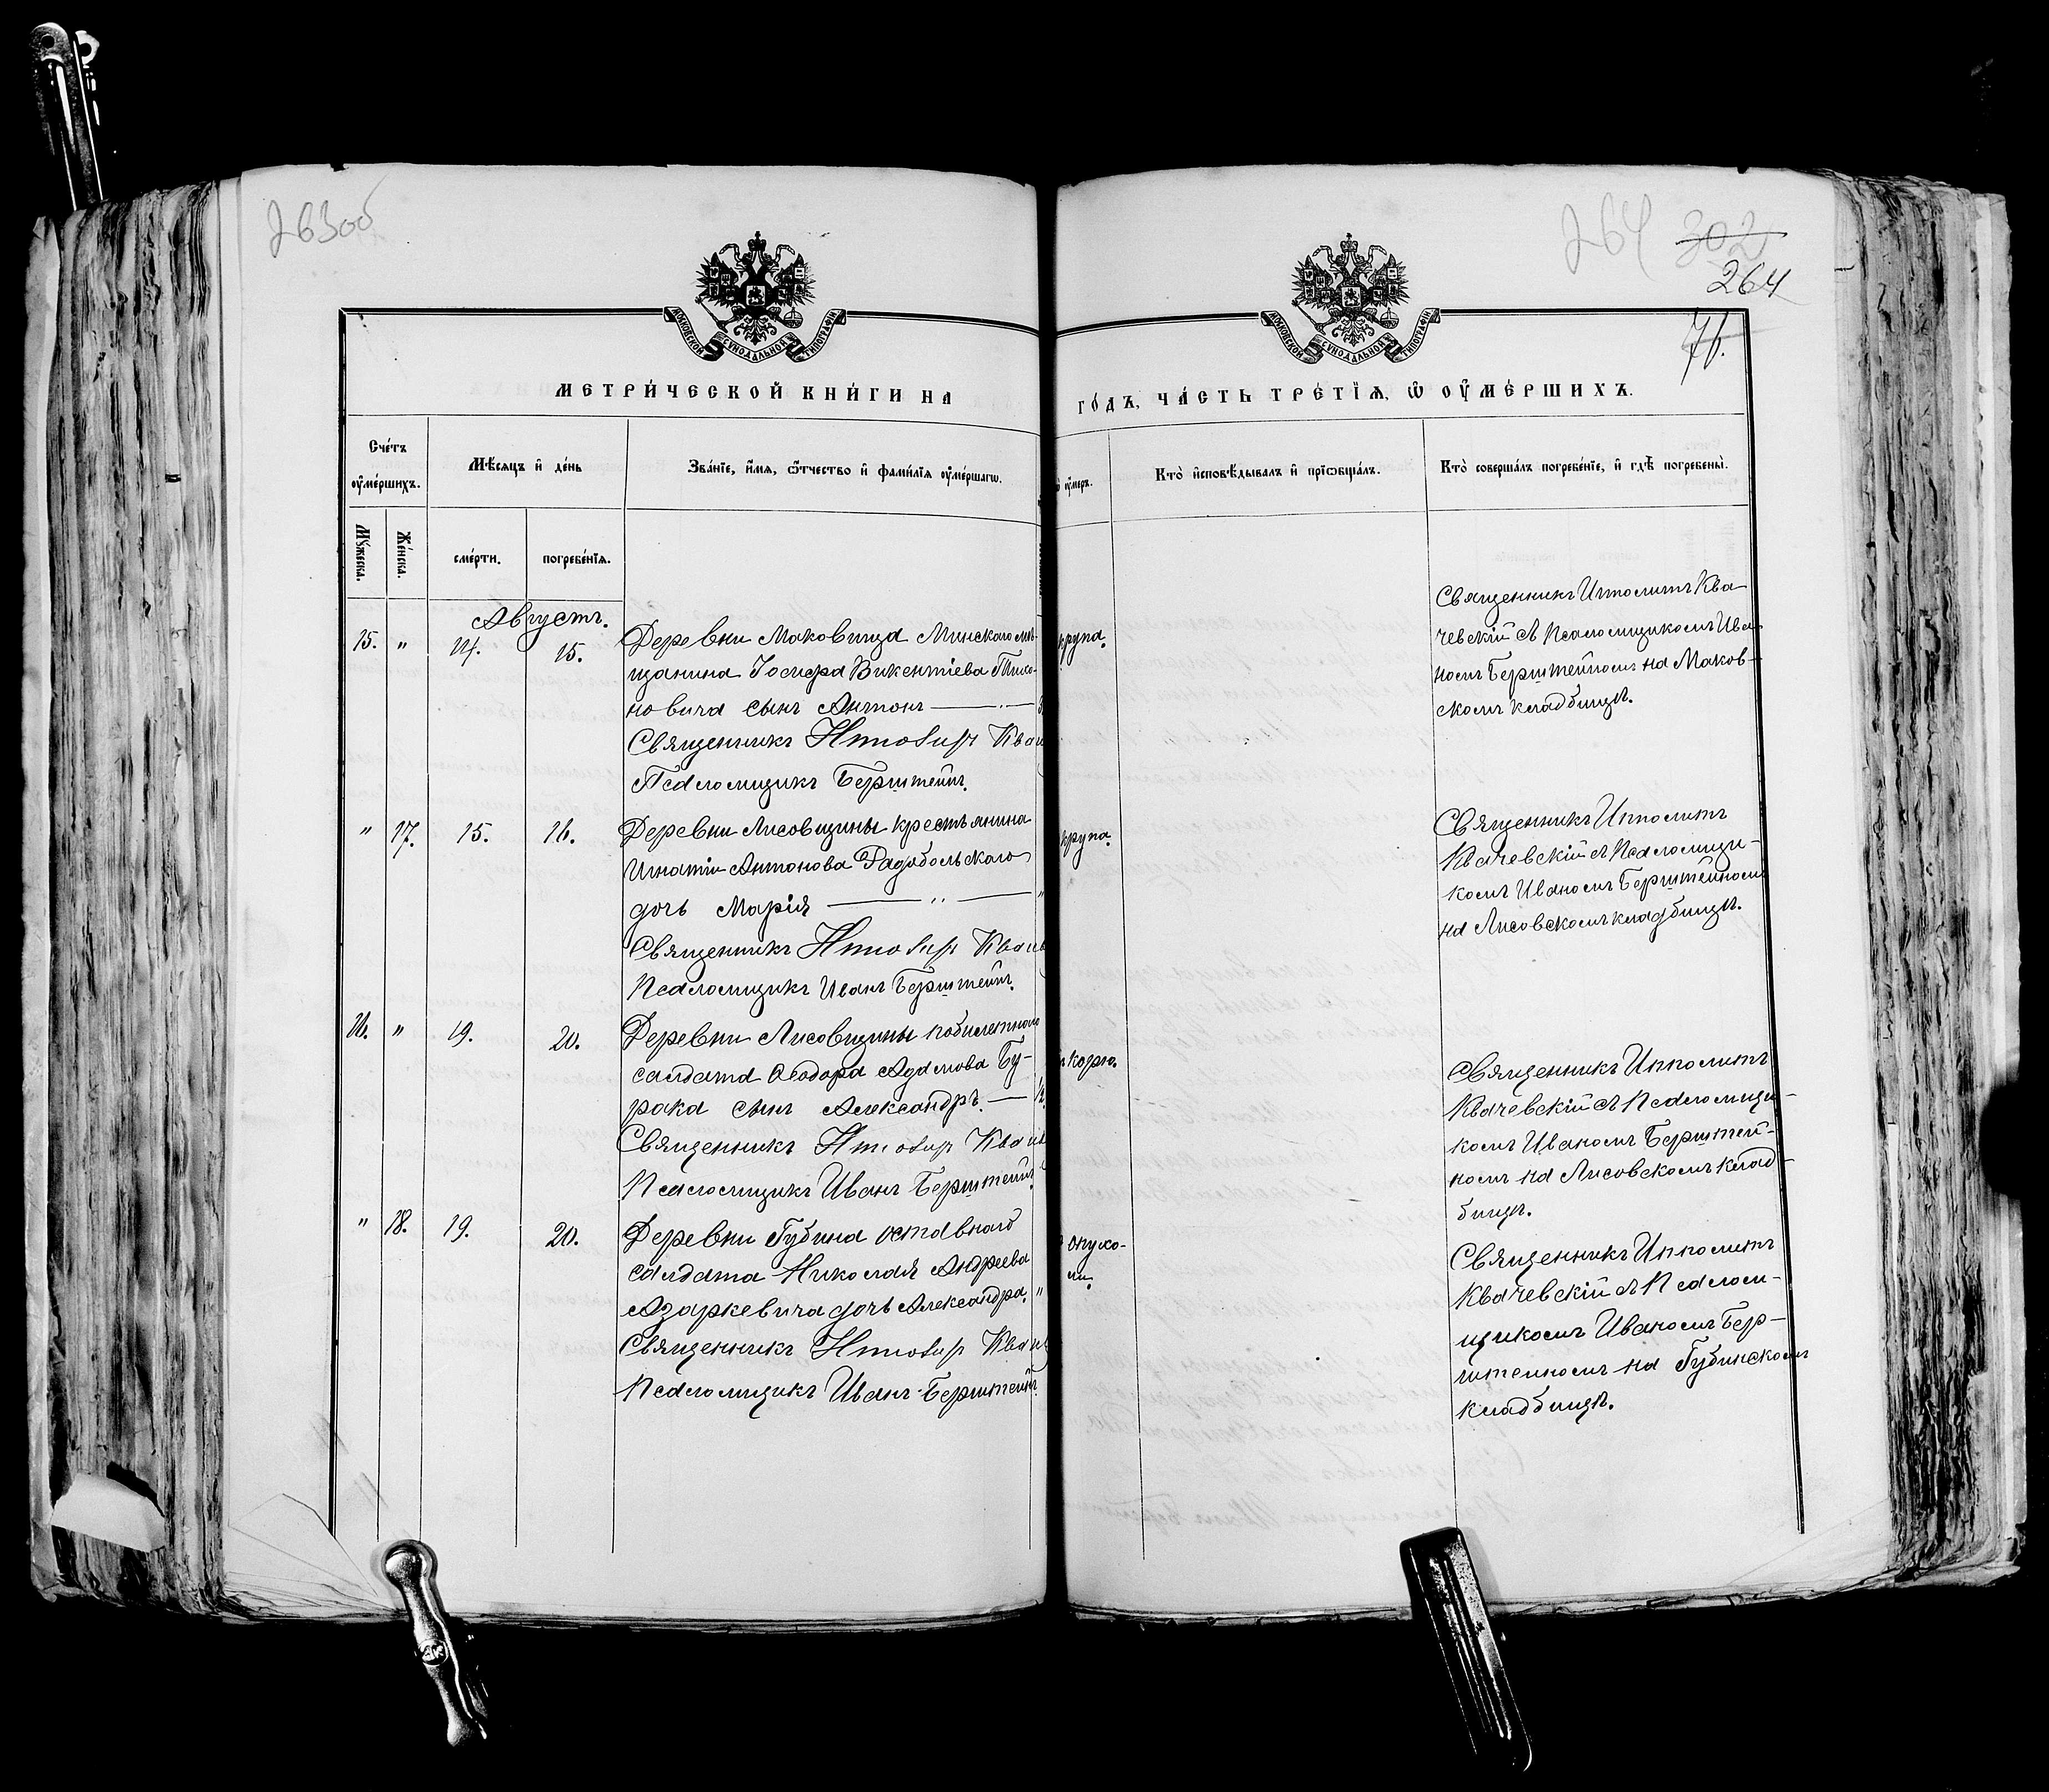 263об
264 302
264
71.
МОСКОВСКОЙ СѴНОДАЛЬНОЙ ТИПОГРАФІИ
МОСКОВСКОЙ СѴНОДАЛЬНОЙ ТИПОГРАФІИ
МЕТРИ́ЧЕСКОЙ КНИ́ГИ НА
ГО́ДЪ, ЧА́СТЬ ТРЕ́ТЇѦ, Ѡ҆ ОУ҆МЕ́РШИХЪ.
Сче́тъ оу҆ме́ршихъ.
Мѣ́сяцъ и҆ де́нь
Зва́нїе, и҆́мѧ, ѻ҆́тчество и҆ фами́лїѧ оу҆ме́ршагѡ.
оу҆́меръ.
Кто̀ и҆сповѣ́дывалъ и҆ прїѡбща́лъ.
Кто̀ соверша́лъ погребе́нїе, и҆ гдѣ̀ погребены̀.
Му́жеска.
Же́нска.
сме́рти.
погребе́нїѧ.
Августъ.
15. " 14. 15.
Деревни Маковища Минскаго мѣ-
щанина Іосифа Викентіева Тихо-
новича сынъ Антонъ
Священникъ Ипполитъ Квач
Псаломщикъ Берштейнъ.
крупа.
Священникъ Ипполитъ Ква
чевскій съ Псаломщикомъ Ива-
номъ Берштейномъ на Маков-
скомъ кладбищѣ.
" 17. 15. 16.
Деревни Лисовщины крестьянина
Игнатія Антонова Радобольскаго
дочь Марія
Священникъ Ипполитъ Квачев
Псаломщикъ Иванъ Берштейнъ.
крупа.
Священникъ Ипполитъ
Квачевскій съ Псаломщи-
комъ Иваномъ Берштейномъ
на Лисовскомъ кладбищѣ.
16. " 19. 20.
Деревни Лисовщины побилетнаго
салдата Ѳеодора Адамова Бу-
рака сынъ Александръ.
Священникъ Ипполитъ Квачев
Псаломщикъ Иванъ Берштейнъ.
корю.
Священникъ Ипполитъ
Квачевскій съ Псаломщи-
комъ Иваномъ Берштей-
номъ на Лисовскомъ клад-
бищѣ.
" 18. 19. 20.
Деревни Губина оставнаго
салдата Николая Андреева
Азаркевича дочь Александра. "
Священникъ Ипполитъ Квачев
Псаломщикъ Иванъ Берштейнъ.
опухо-
ли.
Священникъ Ипполитъ
Квачевскій съ Псалом-
щикомъ Иваномъ Бер-
штеиномъ на Губинскомъ
кладбищѣ.